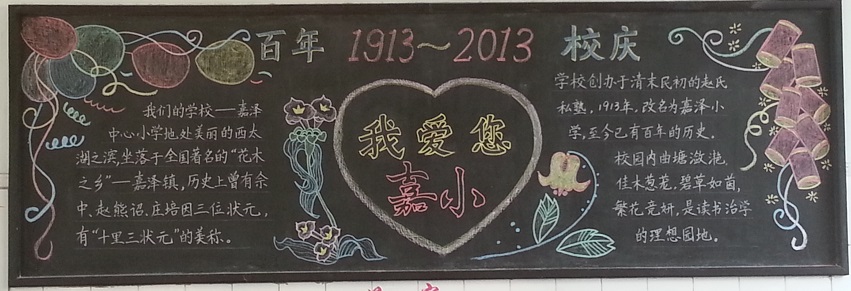 百年 1913~2013 校庆
我们的学校——嘉泽
中心小学地处美丽的西太
湖之滨,坐落于全国著名的“花木
之乡”—嘉泽镇,历史上曾有余
中、赵熊诏、庄培因三位状元,
有“十里三状元”的美称。
我爱您
嘉小
学校创办于清末民初的赵氏
私塾,1913年,改名为嘉泽小
学,至今已有百年的历史。
校园内曲塘潋滟,
佳木葱茏,碧草如茵,
繁花竞妍,是读书治学
的理想园地。